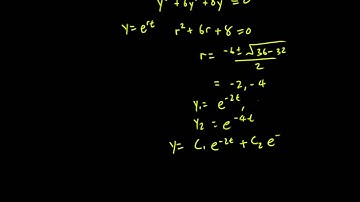 y'' + 6y' + 8y = 0
y = e^{rt}   r² + 6r + 8 = 0
r = (-6 ± √(36 - 32)) / 2
= -2, -4
y₁ = e^{-2t},
y₂ = e^{-4t}
y = C₁ e^{-2t} + C₂ e^{-